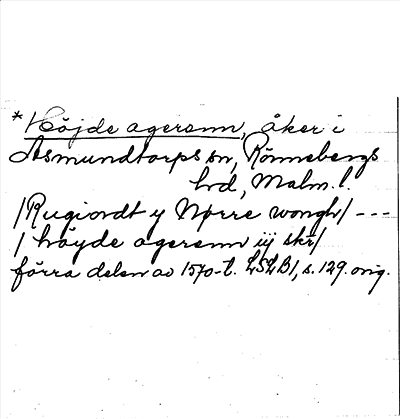 * Höjde agerenn, åker i
Asmundtorps sn, Rönnebergs
hd, Malm. l.
/Rugiordt y Nørre wongh/ ---
/ høyde agerenn iij skr/
förra delen av 1570-t. LSLB1, s. 129. orig.